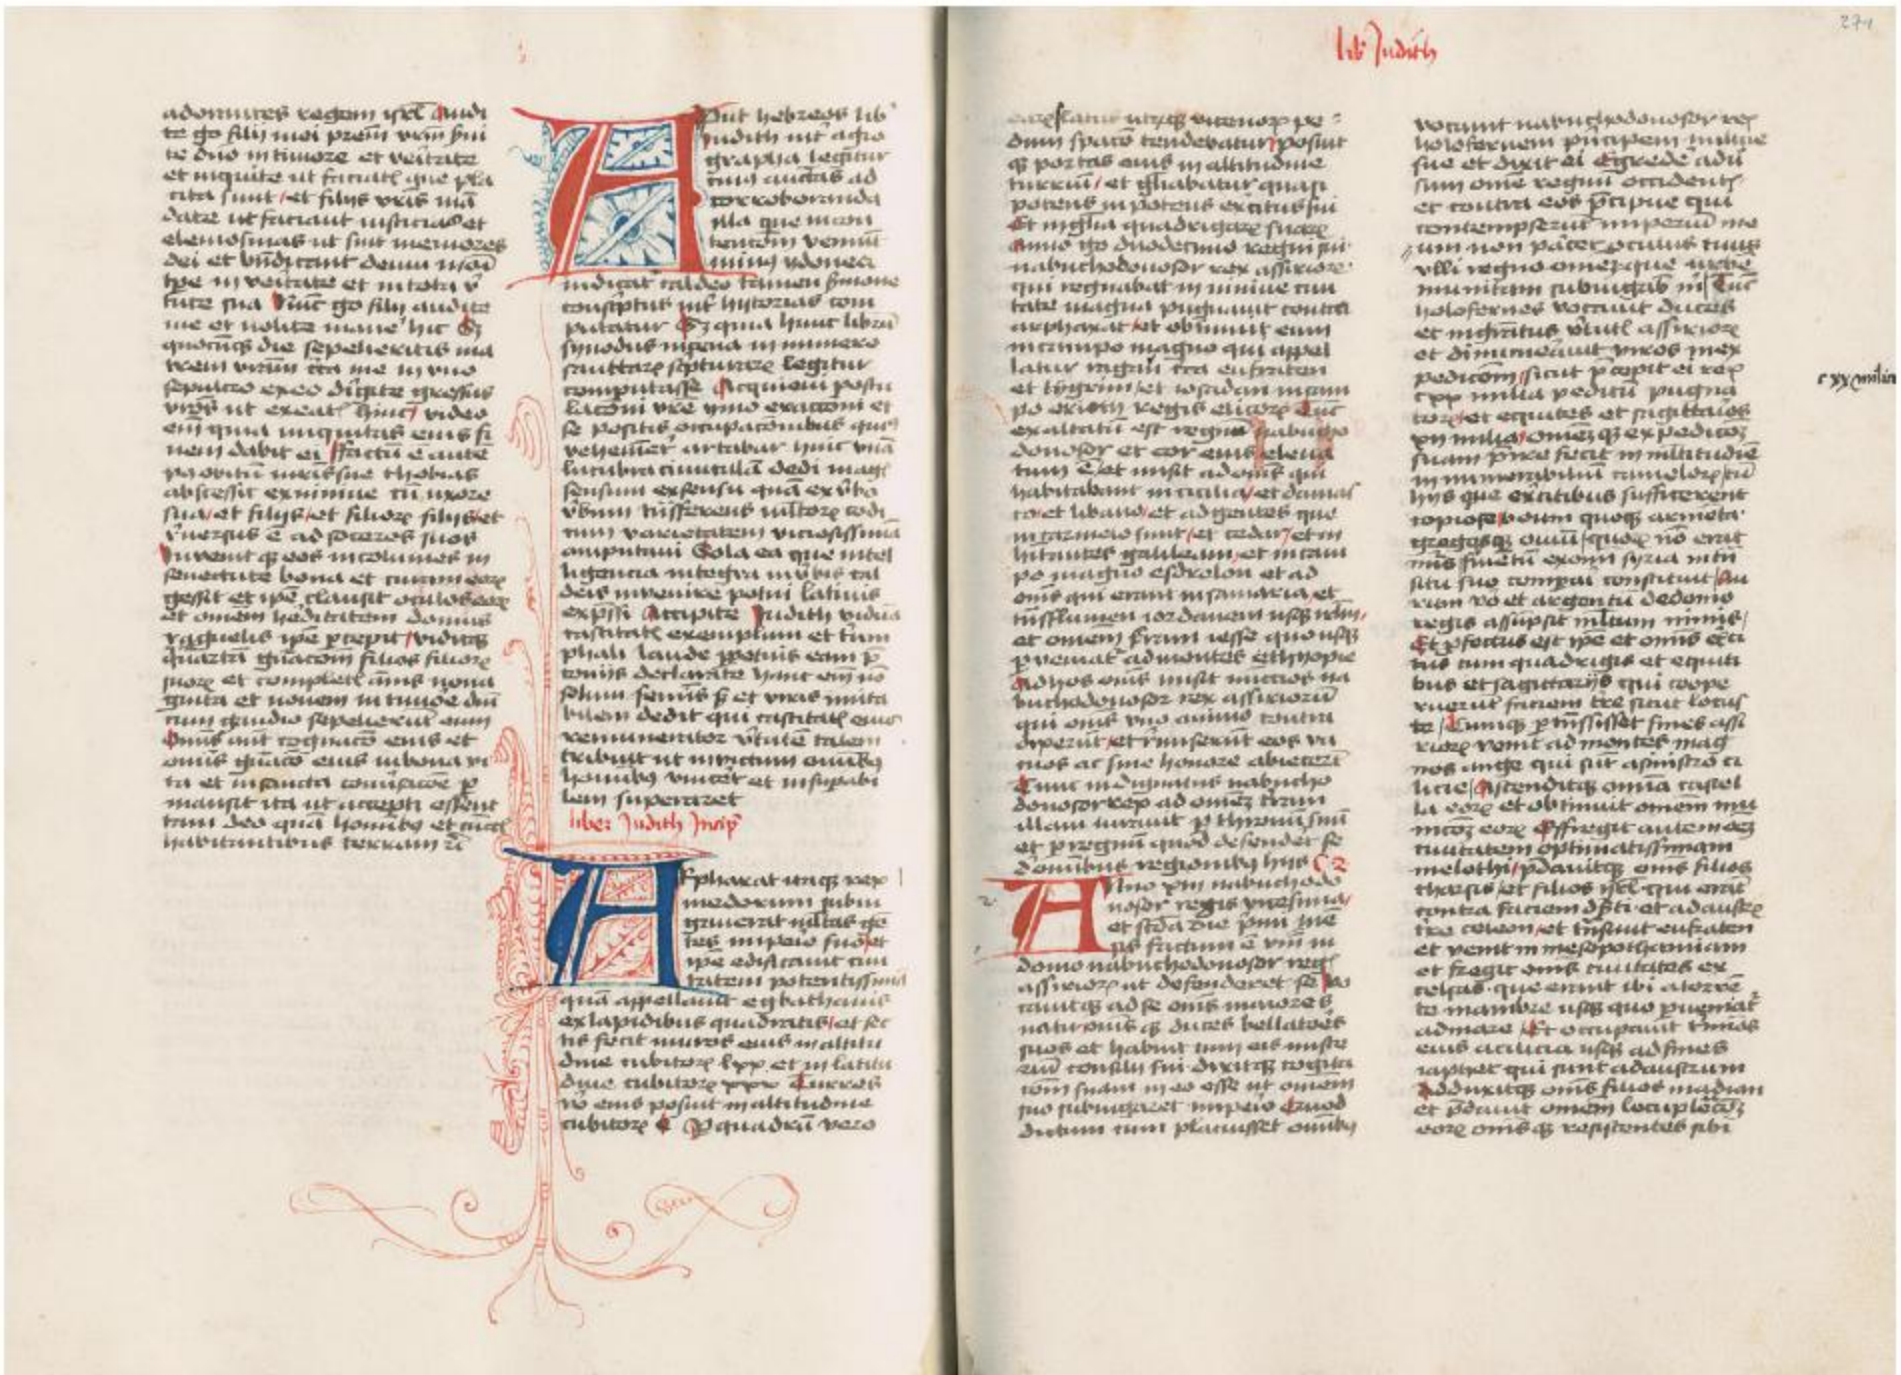 adorantes regem isrl Audi
te go filii mei prem vrm svi
te dno in timore et veritate
et inquirite ut faciatl que pla
cita sunt et filiis vris ma
date ut faciant iusticias et
elemosinas ut sint memores
dei et bndicant deum in oi
tpe in veitate et in tota v
tute sua Nuc go filii audite
me et nolite mane hic Sz
quocuqz die sepelieritis ma
trem vram cca me in vno
sepulcro ex eo dirigite gressus
vros ut exeatl hinc video
em quia iniquitas eius fi
nem dabit ei ffactu e aute
p9 obitu mris sue thobias
abscessit ex ninive cu uxore
sua et filiis et filiorz filiis et
rversus e ad soceros suos
Invenit qz eos incolumes in
senectute bona et curam eorz
gessit et ipe clausit oculos eorz
et omem heditatem domus
raguelis ipe pcepit viditqz
quarta gnacom filios filiorz
suorz et completl annis nona
ginta et novem in timore dni
cum gaudio sepelierut eum
Omis aut cognaco eius et
omis gnaco eius in bona vi
ta et in sancta conversacoe p
mansit ita ut accepti essent
tam deo qua hominibz et cuctl
habitantibus terram ic
Aput hebreos lib
Judith int agio
grapha legitur
cuius auctas ad
corroboranda
illa que in con
tencom veniut
minus ydonea
iudicat caldeo tamen smone
conscptus int historias com
putatur Sz quia hunc libru
synodus nicena in numero
sanctarz scpturarz legitur
computasse Acquievi postu
laconi vre ymo exacconi et
se positis occupaconibus quis
vehementer artabar huic vna
lucubraciunculam dedi magis
sensum ex sensu qua ex vbo
vbum transferens multorz codi
cum varietatem viciosissima
amputavi Sola ea que intel
ligencia integra in vbis cal
deis invenire potui latinis
expssi Accipite Judith vidua
castitatl exemplum et trium
phali laude ppetuis eam p
coniis declarate hanc em no
solum feminis s et viris imita
bilem dedit qui castitatl eius
remunerator vtute talem
tribuit ut invictum omnibz
hominibz vincet et insupabi
lem superaret
liber Judith Incip
Arphaxat itaqz rex
medorum subiu
gaverat multas ge
tes impeio suo et
ipe edificavit civi
tatem potentissima
qua appellavit egbathanis
ex lapidibus quadratis et sec
tis fecit muros eius in altitu
dine cubitorz lxx et in latitu
dine cubitorz xxx Turres
vo eius posuit in altitudine
cubitorz C P quadru vero
lib Judith
271
earz latus utrqz vicenorz pe
dum spaco tendebatur posuit
qz portas eius in altitudine
turrium et gliabatur quasi
potens in potencia excitus sui
Et in glia quadrigarz suarz
Anno go duodecimo regni sui
nabuchodonosor rex assiriorz
qui regnabat in ninive civi
tate magna pugnavit contra
arphaxat et obtinuit eum
in campo magno qui appel
latur ragau cca eufraten
et tygrim et iosadan in cam
po eriotht regis elicorz Tuc
exaltatu est regnu nabucho
donosor et cor eius eleva
tum e et misit ad omis qui
habitabant in cicilia et damas
co et libano et ad gentes que
in carmelo sunt et cedar et in
hitantes galileam et in cam
po magno esdrelon et ad
omis qui erant in samaria et
trans flumen iordanem usqz irlm
et omem terram iesse quo usqz
pveniat ad montes ethyopie
Ad hos omis misit nuncios na
buchodonosor rex assiriorum
qui omis vno animo contra
dixerut et rmiserut eos va
cuos ac sine honore abiecert
Tunc indignatus nabucho
donosor rex ad omez terram
illam iuravit p thronu suu
et p regnu quod defendet se
d omibus regionibz hiis C 2
Anno xiii nabuchodo
nosor regis vicesima
et scda die pmi me
sis factum e vbu in
domo nabuchodonosor regl
assiriorz ut defenderet se Vo
cavitqz ad se omis maiores
natu omis qz duces bellatores
suos et habuit cum eis miste
riu consilii sui dixitqz cogita
com suam in eo esse ut omem
suo subiugaret impeio Quod
dictum cum placuisset omibz
vocavit nabuchodonosor rex
holofernem pncipem milicie
sue et dixit ei Egrede adu
sum ome regnu occidentl
et contra eos pcipue qui
contempserut imperiu me
um non pacet oculus tuus
vlli regno omemque urbe
munitam subiugabis m Tuc
holofernes vocavit duces
et mgratus vtutl assiriorz
et dinumeravit viros in ex
pedicom sicut pcepit ei rex
cxx milia peditu pugna
torz et equites et sagittarios
xii milia omez qz expedicoz
suam pire fecit in multitudie
innumerabiliu camelorz cu
hiis que excitibus sufficerent
copiose boum quoqz armeta
gregesqz oviu quorz no erat
nus frumetu ex omi syria in tn
situ suo compai constituit Au
rum vo et argentu de domo
regis assupsit multum nimis
Et pfectus est ipe et omis exci
tus cum quadrigis et equiti
bus et sagittariis qui coope
ruerut faciem tre sicut locus
te Cumqz ptrnssisset fines assi
riorz venit ad montes mag
nos ange qui sut a sinistro ci
licie Ascenditqz omia castel
la eorz et obtinuit omem mu
nicoz eorz Effregit autem
civitatem opinatissimam
melothi pdavitqz omis filios
tharsis et filios isrl qui erat
contra faciem dsti et ad austrz
tre celeon et trnsivit eufraten
et venit in mesopothamiam
et fregit omis civitates ex
celsas que erant ibi a torre
te mambre usqz quo pveniat
ad mare Et occupavit tminos
eius a cilicia usqz ad fines
iaphet qui sunt ad austrum
Adduxitqz omis filios madian
et pdavit omem locupletacoz
eorz omis qz resistentes sibi
cxx milia